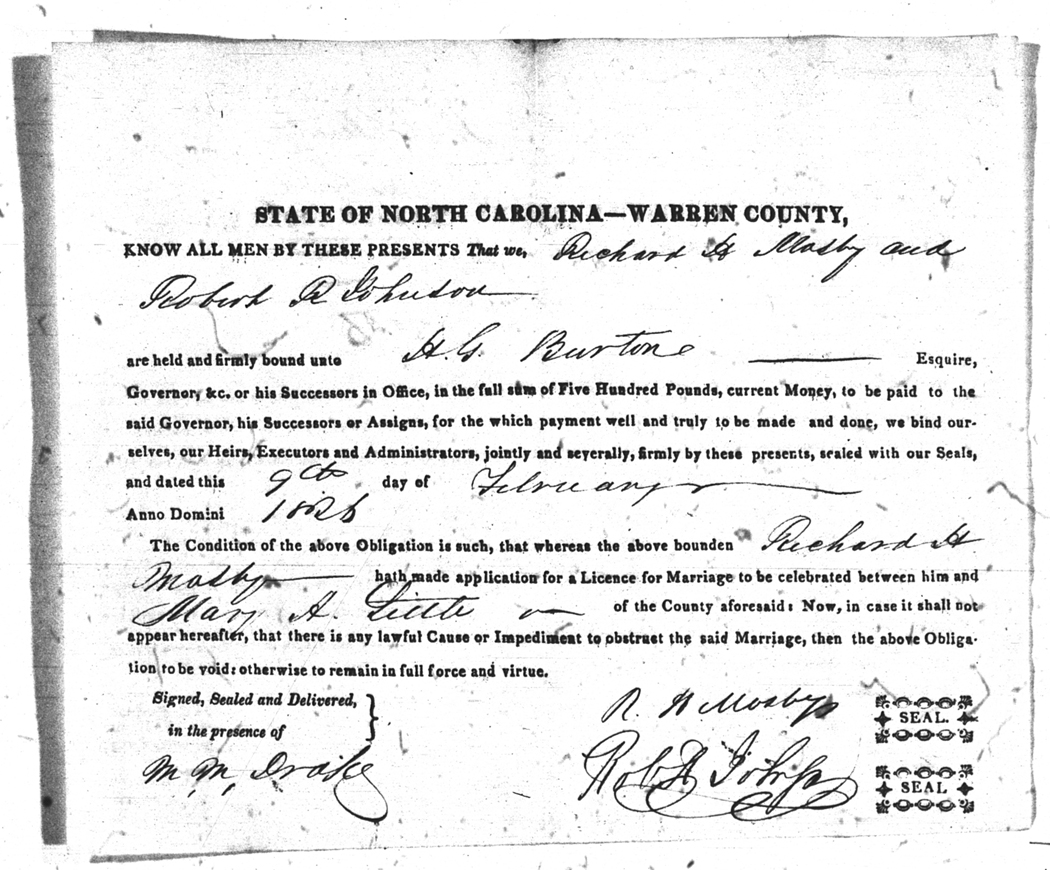 STATE OF NORTH CAROLINA—WARREN COUNTY,
KNOW ALL MEN BY THESE PRESENTS That we, Richard H Mosby and
Robert R Johnson
are held and firmly bound unto H. G. Burton Esquire,
Governor, &c. or his Successors in Office, in the full sum of Five Hundred Pounds, current Money, to be paid to the
said Governor, his Successors or Assigns, for the which payment well and truly to be made and done, we bind our-
selves, our Heirs, Executors and Administrators, jointly and severally, firmly by these presents, sealed with our Seals,
and dated this 9th day of February
Anno Domini 1826
The Condition of the above Obligation is such, that whereas the above bounden Richard H
Mosby hath made application for a Licence for Marriage to be celebrated between him and
Mary A. Little of the County aforesaid: Now, in case it shall not
appear hereafter, that there is any lawful Cause or Impediment to obstruct the said Marriage, then the above Obliga-
tion to be void: otherwise to remain in full force and virtue.
Signed, Sealed and Delivered,
in the presence of
R. H Mosby SEAL.
M. M. Drake
Robt R Johnson SEAL